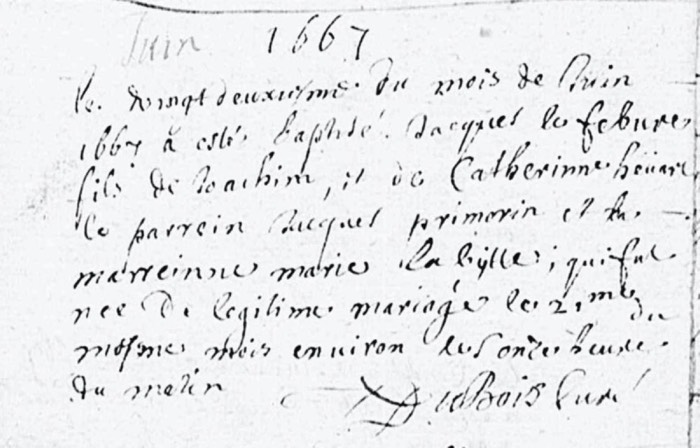 Juin 1667
le vingt deuxiesme du mois de Juin
1667 a esté baptisé Jacques le febure
fils de Joachim, et de Catherinne
le parrein Jacques primorin et la
marreinne marie la bille, qui fut
nee de legitime mariage le 21me du
mesme mois environ les onze heure
du matin
DuBois Curé